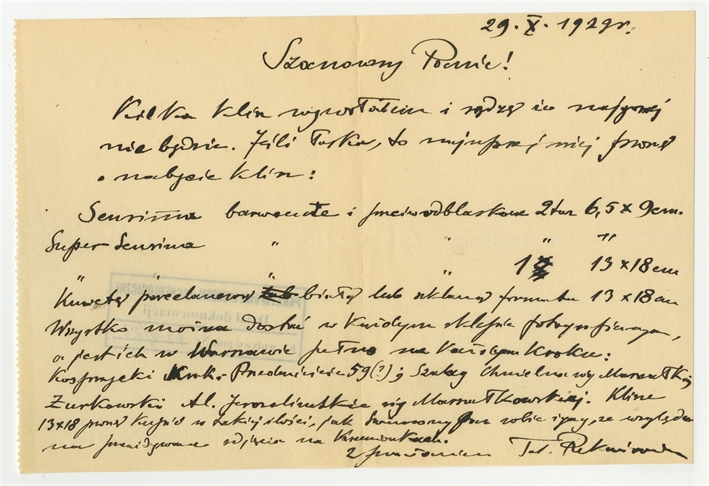 29. X. 1929 r.
Szanowny Panie!
Kilka klisz wywołałem i sądzę że najgorzej
nie będzie. Jeśli łaska, to najuprzejmiej proszę
o nabycie klisz:
Sensima barwoczułe i przeciwodblaskowe 2 tuz 6,5 x 9 cm.
Super-Sensima " " " "
" " " 1 13 x 18 cm
Kuwetę porcelanową białą lub szklaną formatu 13 x 18 cm
Wszystko można dostać w każdym sklepie fotograficznym,
a jest ich w Warszawie pełno na każdym kroku:
Krak. Przedmieście 59 (?); Szalay Chmielna róg Marszałkowskiej
Żurkowski Al. Jerozolimskie róg Marszałkowskiej. Klisze
13x18 proszę kupić w takiej ilości, jak Szanowny Pan sobie życzy, ze względu
na przewidywane zdjęcia na Krzemionkach.
Z poważaniem Tad.